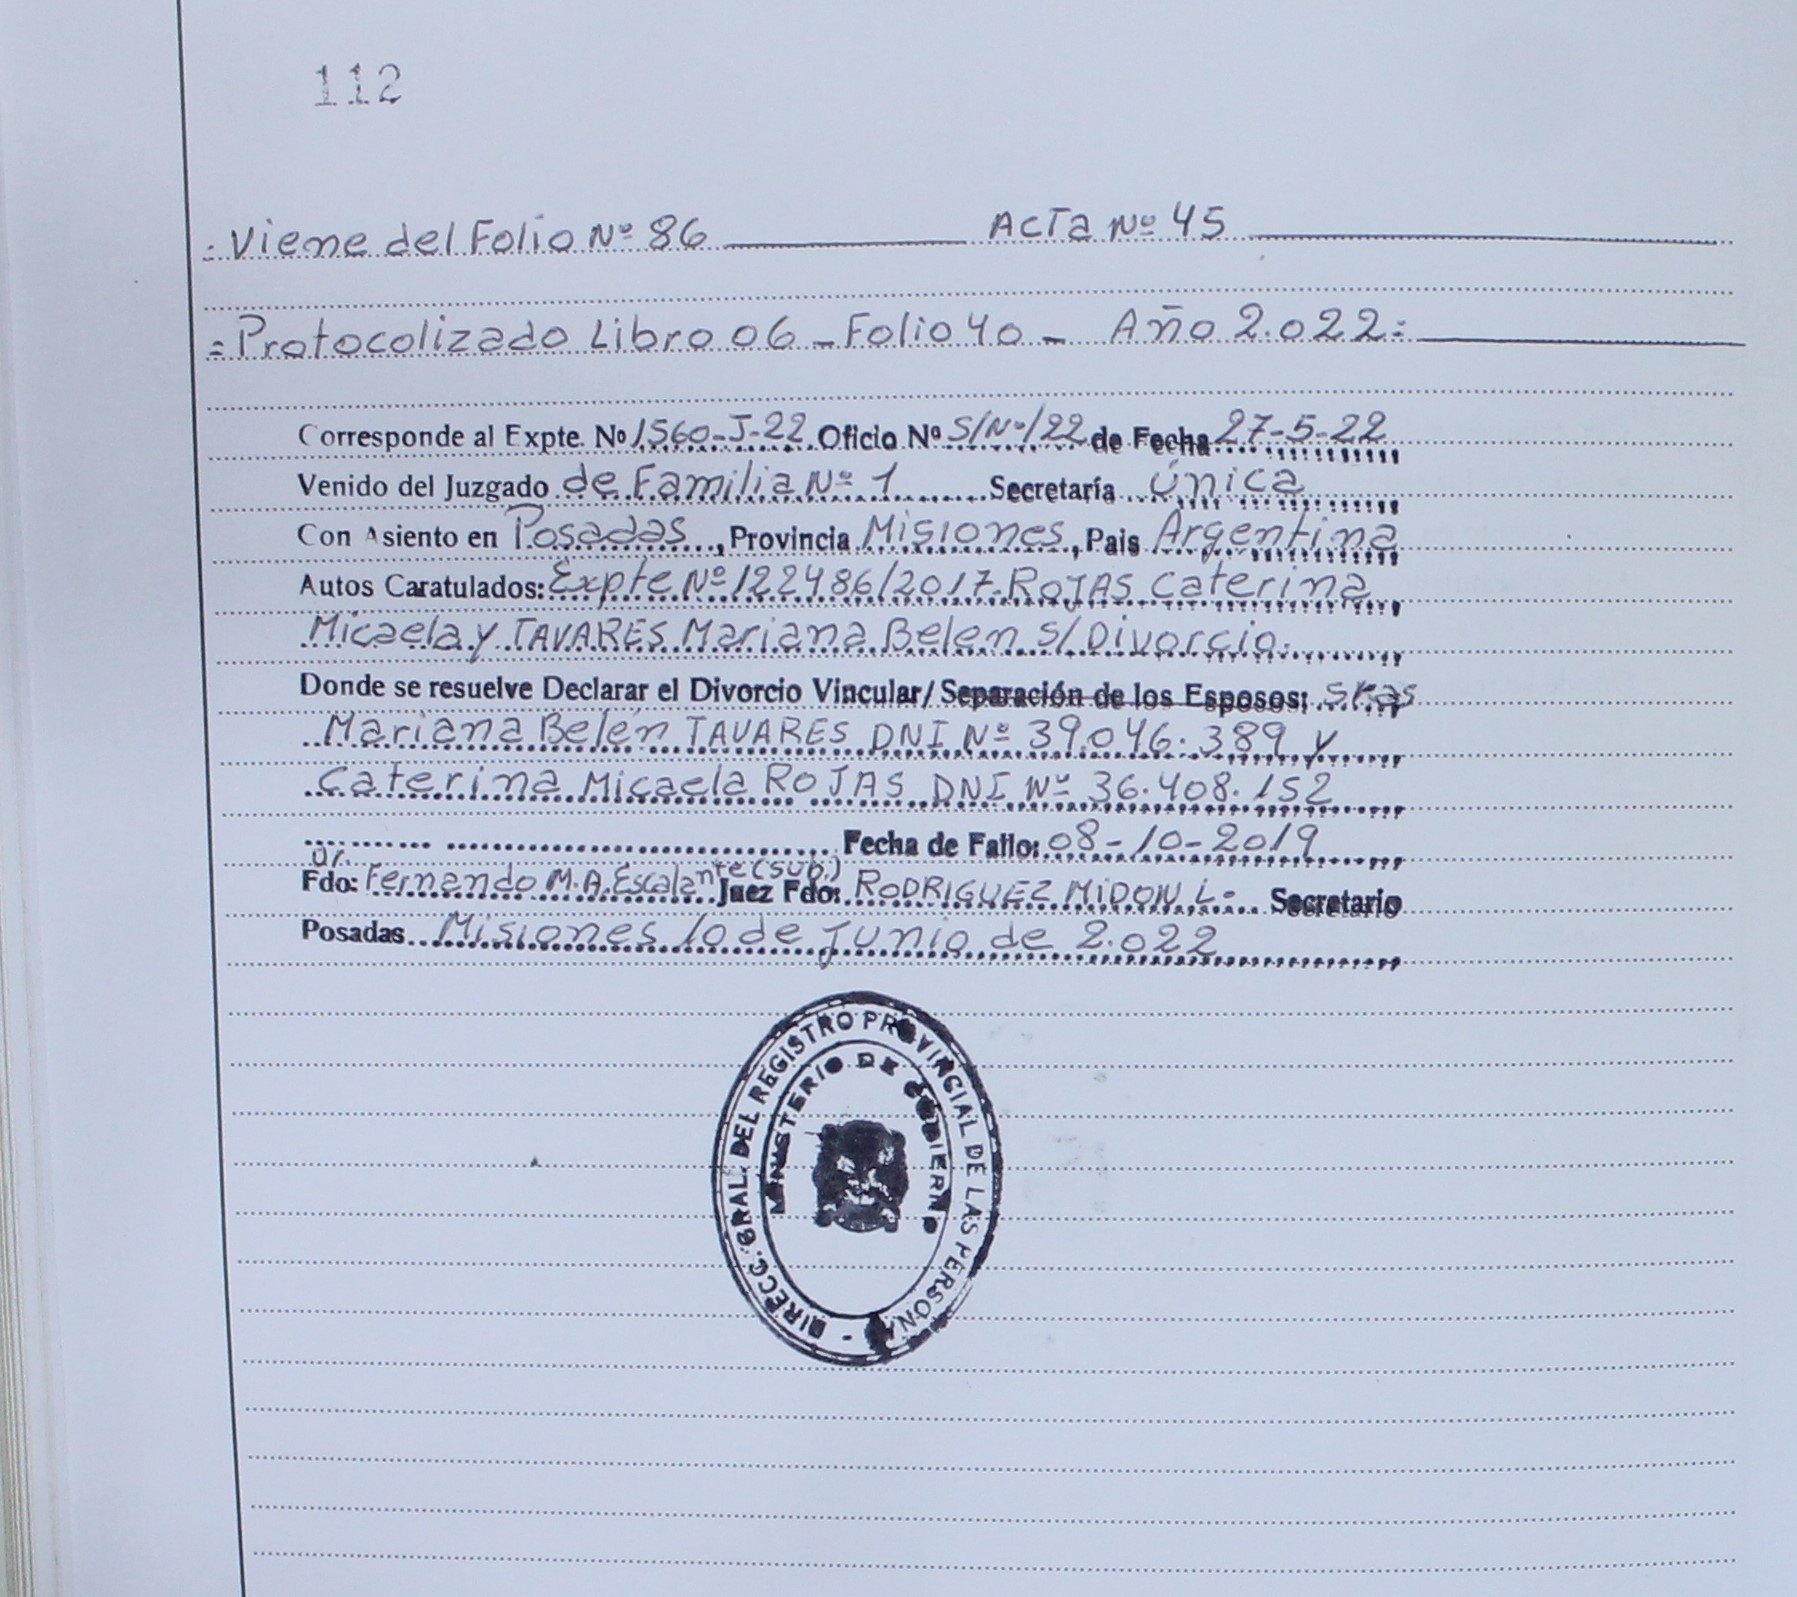 112
= Viene del Folio Nº 86 ACTA Nº 45
= Protocolizado Libro 06 - Folio 40 - Año 2.022 =
Corresponde al Expte. Nº 1560-J-22 Oficio Nº S/Nº/22 de Fecha 27-5-22
Venido del Juzgado de Familia Nº 1 Secretaría única
Con Asiento en Posadas, Provincia Misiones, Pais Argentina
Autos Caratulados: Expte Nº 122486/2017. ROJAS Caterina
Micaela y TAVARES Mariana Belen S/ Divorcio.
Donde se resuelve Declarar el Divorcio Vincular/ Separación de los Esposos: sras
Mariana Belén TAVARES DNI Nº 39.046.389 y
Caterina Micaela ROJAS DNI Nº 36.408.152
Fecha de Fallo: 08-10-2019
Fdo: Dr. Fernando M.A. Escalante (sub.) Juez Fdo: RODRIGUEZ MIDON L. Secretario
Posadas Misiones 10 de Junio de 2.022
DIRECC. GRAL. DEL REGISTRO PROVINCIAL DE LAS PERSON
MINISTERIO DE GOBIERNO